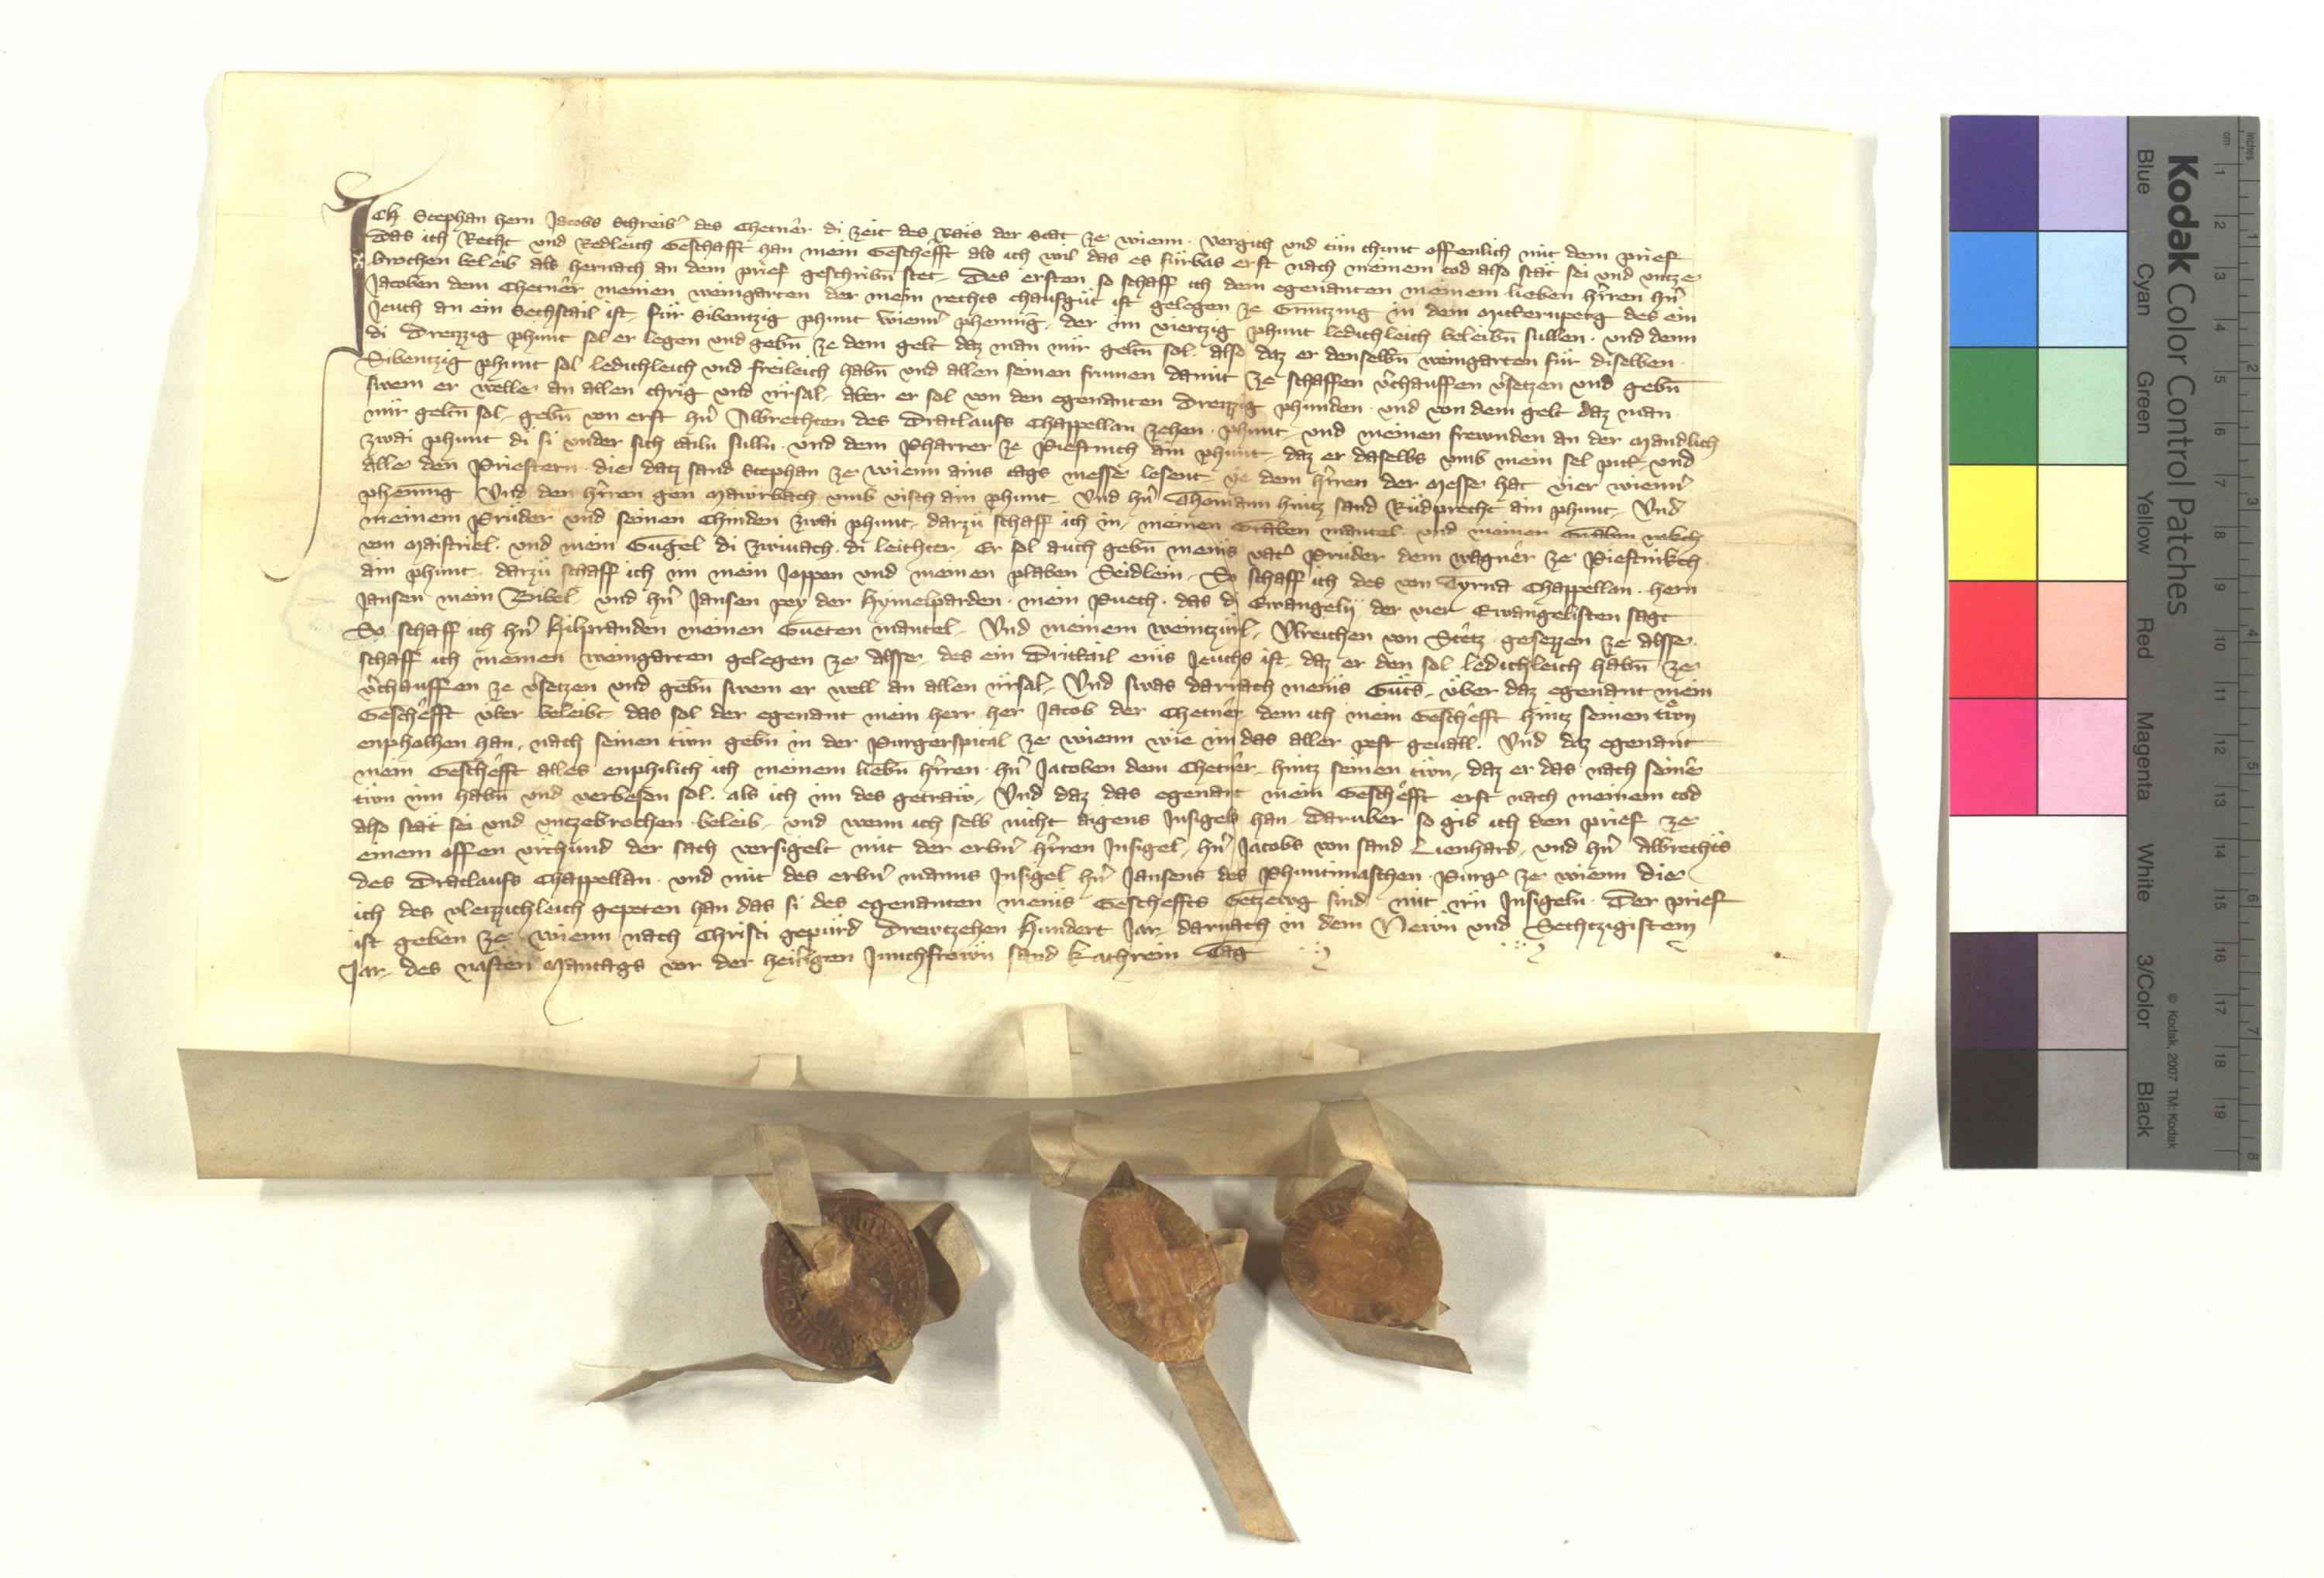 Ich Stephan hern Jacobs Schreiber des Chetner di zeit des rats der Stat ze wienn vergich und tun chunt offenlich mit dem prief
das ich Recht und Redleich Geschafft han mein Geschefft als ich wil das es fürbas erst nach meinem tod also stät sei und untze
brochen beleib als hernach an dem prief geschribn stet Des ersten so schaff ich dem egenanten meinem lieben hren hn
Jacoben dem Chetner meinen weingarten der mein rechts chaufgüt ist gelegen ze Grintzing in dem des ein
Jeuch an ein Sechstail ist für Sibentzig phunt wienn phennig der im viertzig phunt ledichleich beleibn sullen und denn
di Dreizzig phunt sol er legen und gebn ze dem gelt daz man mir geltn sol also daz er denselbn weingarten für diselben
Sibentzig phunt sol ledichleich und freileich habn und allen seinen frumen damit ze schaffen vchauffen vsetzen und gebn
swem er welle an allen chrig und irrsal aber er sol von den egenanten Dreizzig phunden und von dem gelt daz man
mir geltn sol gebn von erst hn Albrechten des Dratlaufs Chappellan zehen phunt und meinen frewnden an der
zwai phunt di si under sich tailn sulln und dem Pharrer ze ain phunt daz er daselbs umb mein sel pitt und
alle den Priestern die datz sand Stephan ze wienn ains tags messe lesent ye dem hren der Messe hat vier wienn
phennig Und den hren gen Mawrbach umb visch ain phunt Und hn Thomann hintz sand Rudprecht ain phunt Und
meinem Prüder und seinen Chinden zwai phunt darzü schaff ich in meinen Graben mantel und meinen Graben rokch
von und mein Gugel di zwivach di leichter Er sol auch gebn meins vat Prüder dem wagner ze Piestnikch
ain phunt darzü schaff ich im mein Joppen und meinen plaben Seidlein So schaff ich des von Tyrna Chappellan hern
Jansen mein Bibel und hn Jansen pey der Hymelparden mein Puech das di Ewangelij der vier Ewangelisten sagt
So schaff ich hn Hilpranden meinen Gueten mantel Und meinem weintzürl Ulreichen von Stetz gesezzen ze Alsse
schaff ich meinen weingarten gelegen ze Alsse des ein Drittail eins Jeuchs ist daz er den sol ledichleich habn ze
vchauffen ze vsetzen und gebn swem er well an allen irrsal Und swas darnach meins Guts über daz egenant mein
Geschefft über beleibt das sol der egenant mein herr her Jacob der Chetner dem ich mein Geschefft hintz seinen trwn
enpholhen han nach seinen trwn gebn in der Purgerspital ze wienn wie im das aller pest gevall Und daz egenant
mein Geschefft alles enphilich ich meinem liebn hren hn Jacoben dem Chetner hintz seinen trwn daz er das nach seine
trwn inn habn und verbesen sol als ich im des getraw Und daz das egenant mein Geschefft erst nach meinem tod
also stät sei und untzebrochen beleib und wenn ich selb nicht aigens Insigels han daruber so gib ich den prief ze
einem offen urchünd der sach versigelt mit der erbn hren Insigel hn Jacobs von sand Lienhard und hn Albrechts
des Dratlaufs Chappellan und mit des erbn manns Insigel hn Jansens des Phuntmaschen Purg ze wienn die
ich des vleizzichleich gepeten han das si des egenanten meins Gescheffts Getzewg sind mit irn Insigeln Der prief
ist geben ze wienn nach Christi gepürd Drewtzehen Hundert Jar darnach in dem Newn und Sechtzigistem
Jar des nästen Mantags vor der heiligen Junchfrown sand Kathrein Tag
Kodak Color Control Patches
Blue Cyan Green Yellow Red Magenta White 3/Color Black
© Kodak, 2007 TM: Kodak
cm 1 2 3 4 5 6 7 8 9 10 11 12 13 14 15 16 17 18 19
inches 1 2 3 4 5 6 7 8